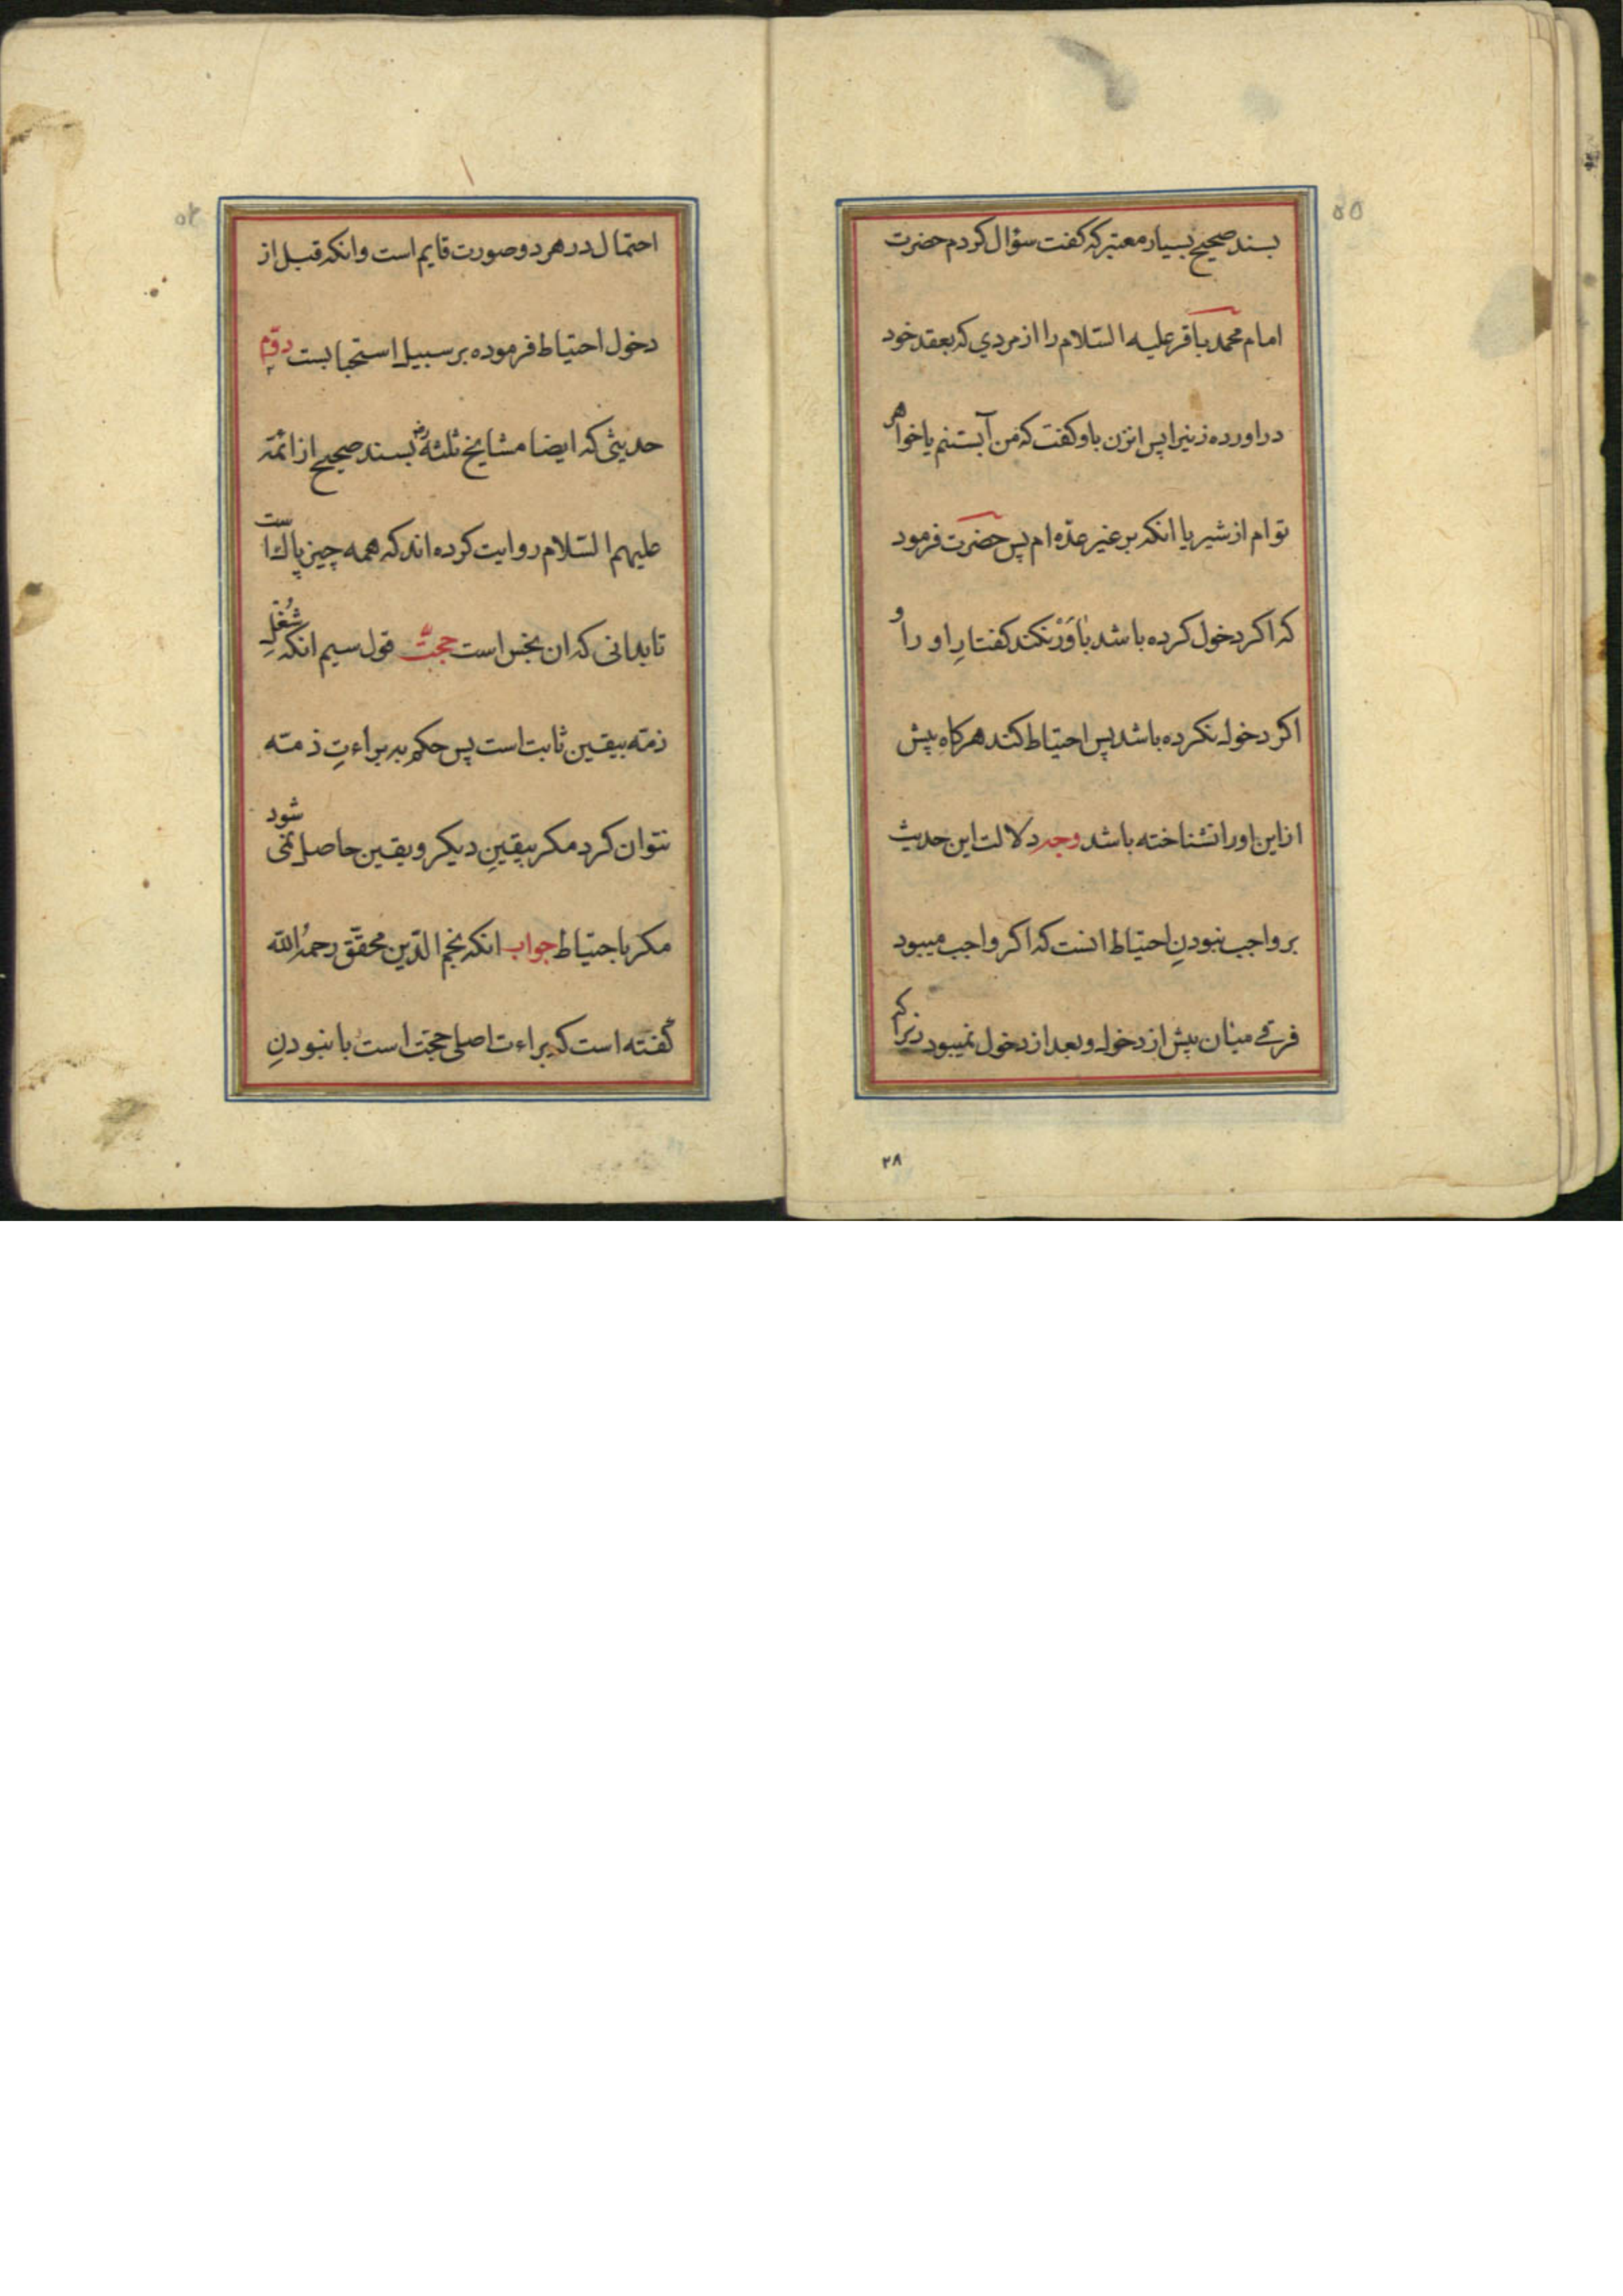 ۵۵
بسند صحیح بسیار معتبر که کفت سؤال کردم حضرت
امام محمد باقر علیه السّلام را از مردي که بعقد خود
دراورده زنیرا پس انزن باو کفت که من آبستنم یا خواهر
توام از شیر یا انکه بر غیر عدّه ام پس حضرت فرمود
که اکر دخول کرده باشد باوَرْ نکند کفتارِ او را و
اکر دخول نکرده باشد پس احتیاط کند هرکاه پیش
ازاین اورا نشناخته باشد وجه دلالت این حدیث
بر واجب نبودنِ احتیاط انست که اکر واجب میبود
فرقے میان پیش از دخول و بعد از دخول نمیبود زیراکه
۲۸
احتمال در هر دو صورت قایم است وانکه قبل از
دخول احتیاط فرموده بر سبیل استحبابست دوّم
حدیثی که ایضا مشایخ ثلثه رض بسند صحیح از ائمّه
علیهم السّلام روایت کرده اند که همه چیز پاك است
تا بدانی که ان نجس است حجّت قول سیم انکه شُغلِ
ذمّه بیقین ثابت است پس حکم به براءتِ ذمّه
نتوان کرد مکر بیقینِ دیکر و یقین حاصل نمی شود
مکر باحتیاط جواب انکه نجم الدّین محقّق رحمهُ الله
کفته است که براءت اصلی حجّت است با نبودنِ